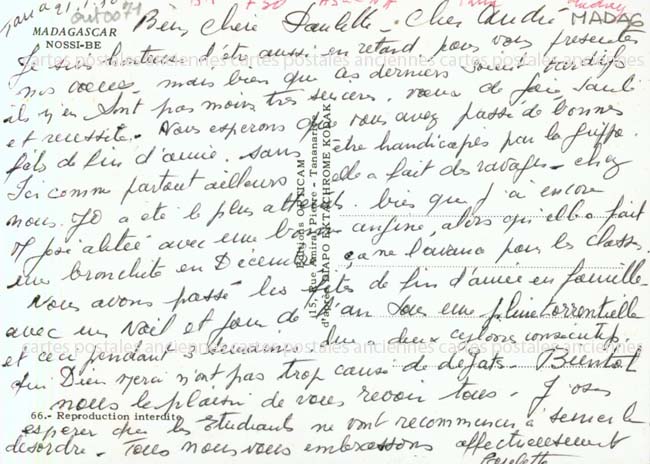 Tana 21.1.
MADAGASCAR
NOSSI-BE
Bien chère Paulette - Cher André
MADAG
Je suis honteuse d'être aussi en retard pour vous présenter
nos voeux - mais bien que ces derniers soient tardifs
ils n'en sont pas moins très sincères. voeux de joie, santé
et réussite. Nous espérons que vous avez passé de bonnes
fêts de fin d'année. sans être handicapés par la grippe.
Ici comme partout ailleurs elle a fait des ravages - chez
nous. JO a été le plus atteint. bien que j'ai encore
alitée avec une bonne angine, alors qu'elle a fait
une bronchite en Décembre ça ne l'avance pour les classes.
Nous avons passé les fêtes de fin d'année en famille
avec un Noël et jour de l'an sous une pluie torrentielle
et ceci pendant 3 semaines due a deux cyclones consécutifs.
qui Dieu merci n'ont pas trop causé de dégâts - Bientôt
nous le plaisir de vous revoir tous - J'ose
espérer que les étudiants ne vont recommencer à semer le
désordre - Tous nous vous embrassons affectueusement
Editions OPTICAM
115, rue Amiral Pierre - Tananarive
d'après DIAPO EKTACHROME KODAK
66.- Reproduction interdite
cartes postales anciennes cartes postales anciennes cartes postales anciennes
cartes postales anciennes cartes postales anciennes cartes postales anciennes